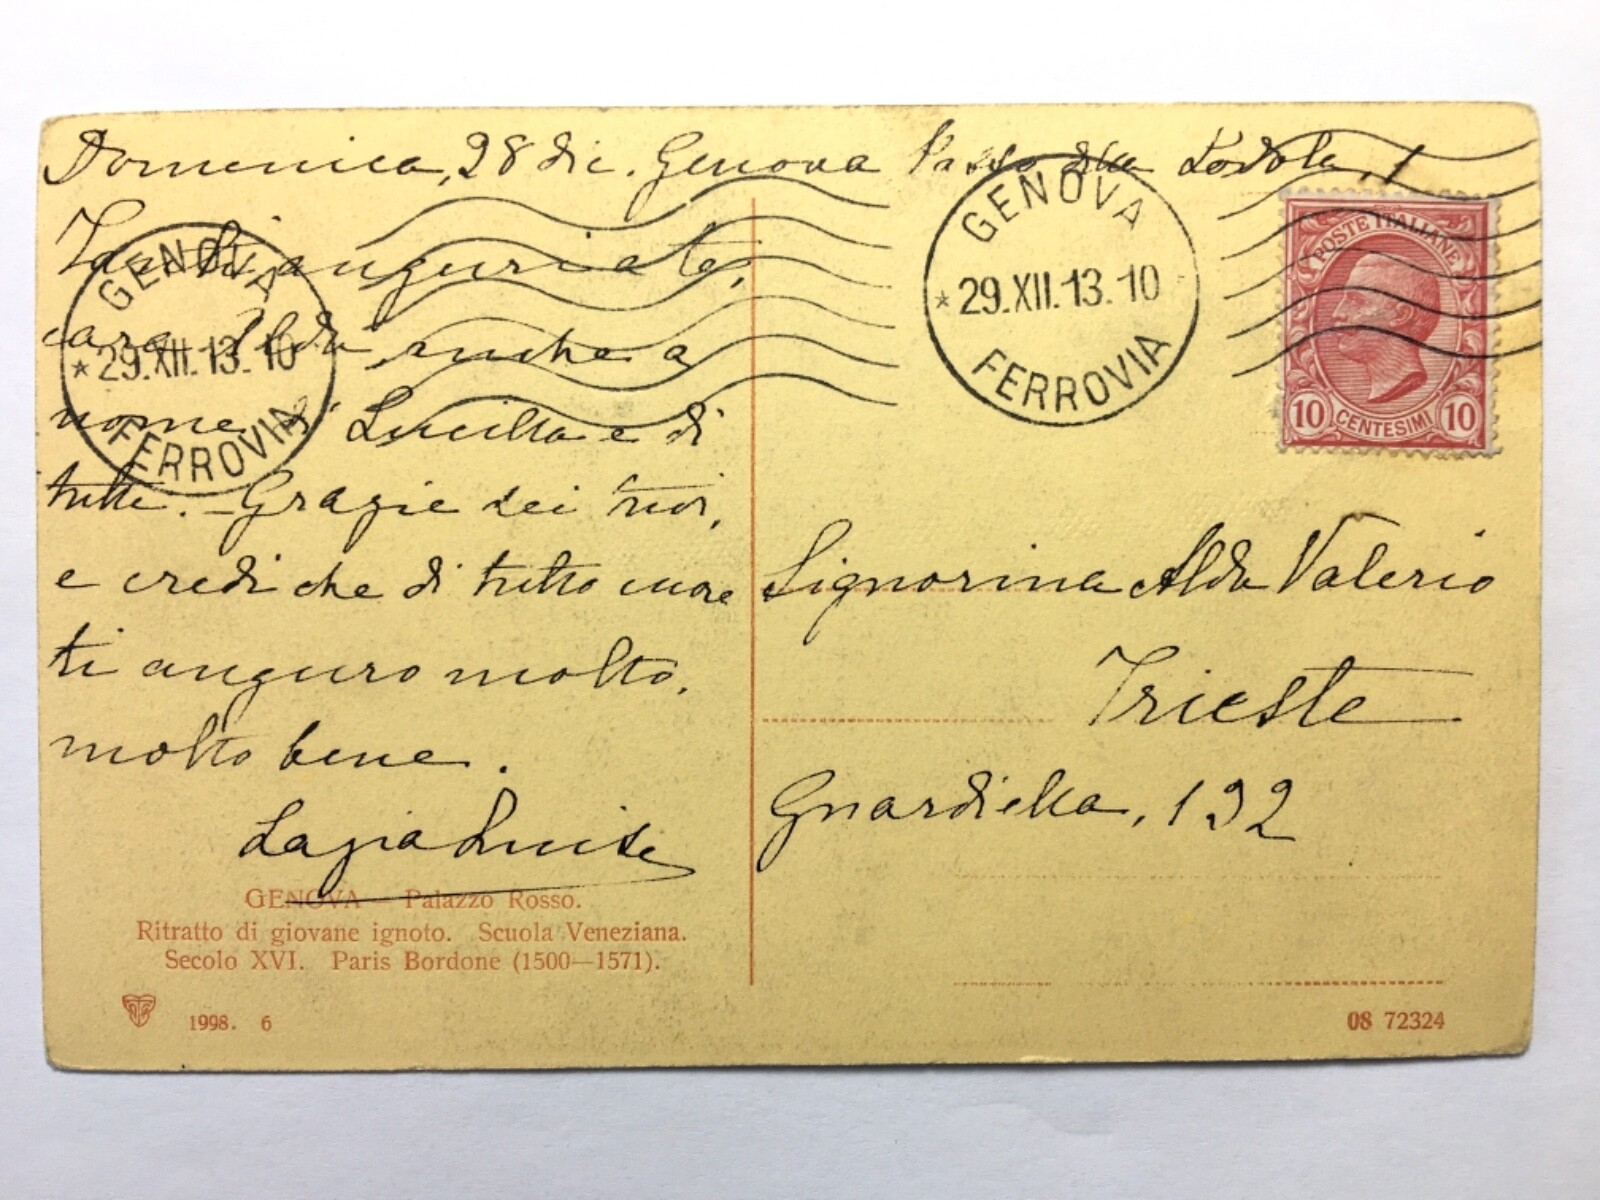 Domenica, 28 dic. Genova Passo della Lodola, 1
Tanti auguri a te,
cara Alda anche a
nome di Lucilla e di
tutti. – Grazie dei tuoi,
e credi che di tutto cuore
ti auguro molto,
molto bene.
La zia Luisa
GENOVA – Palazzo Rosso.
Ritratto di giovane ignoto. Scuola Veneziana.
Secolo XVI. Paris Bordone (1500—1571).
1998. 6
GENOVA
* 29.XII.13.10
FERROVIA
GENOVA
* 29.XII.13.10
FERROVIA
POSTE ITALIANE
10 CENTESIMI 10
Signorina Alda Valerio
Trieste
Guardiella, 192
08 72324